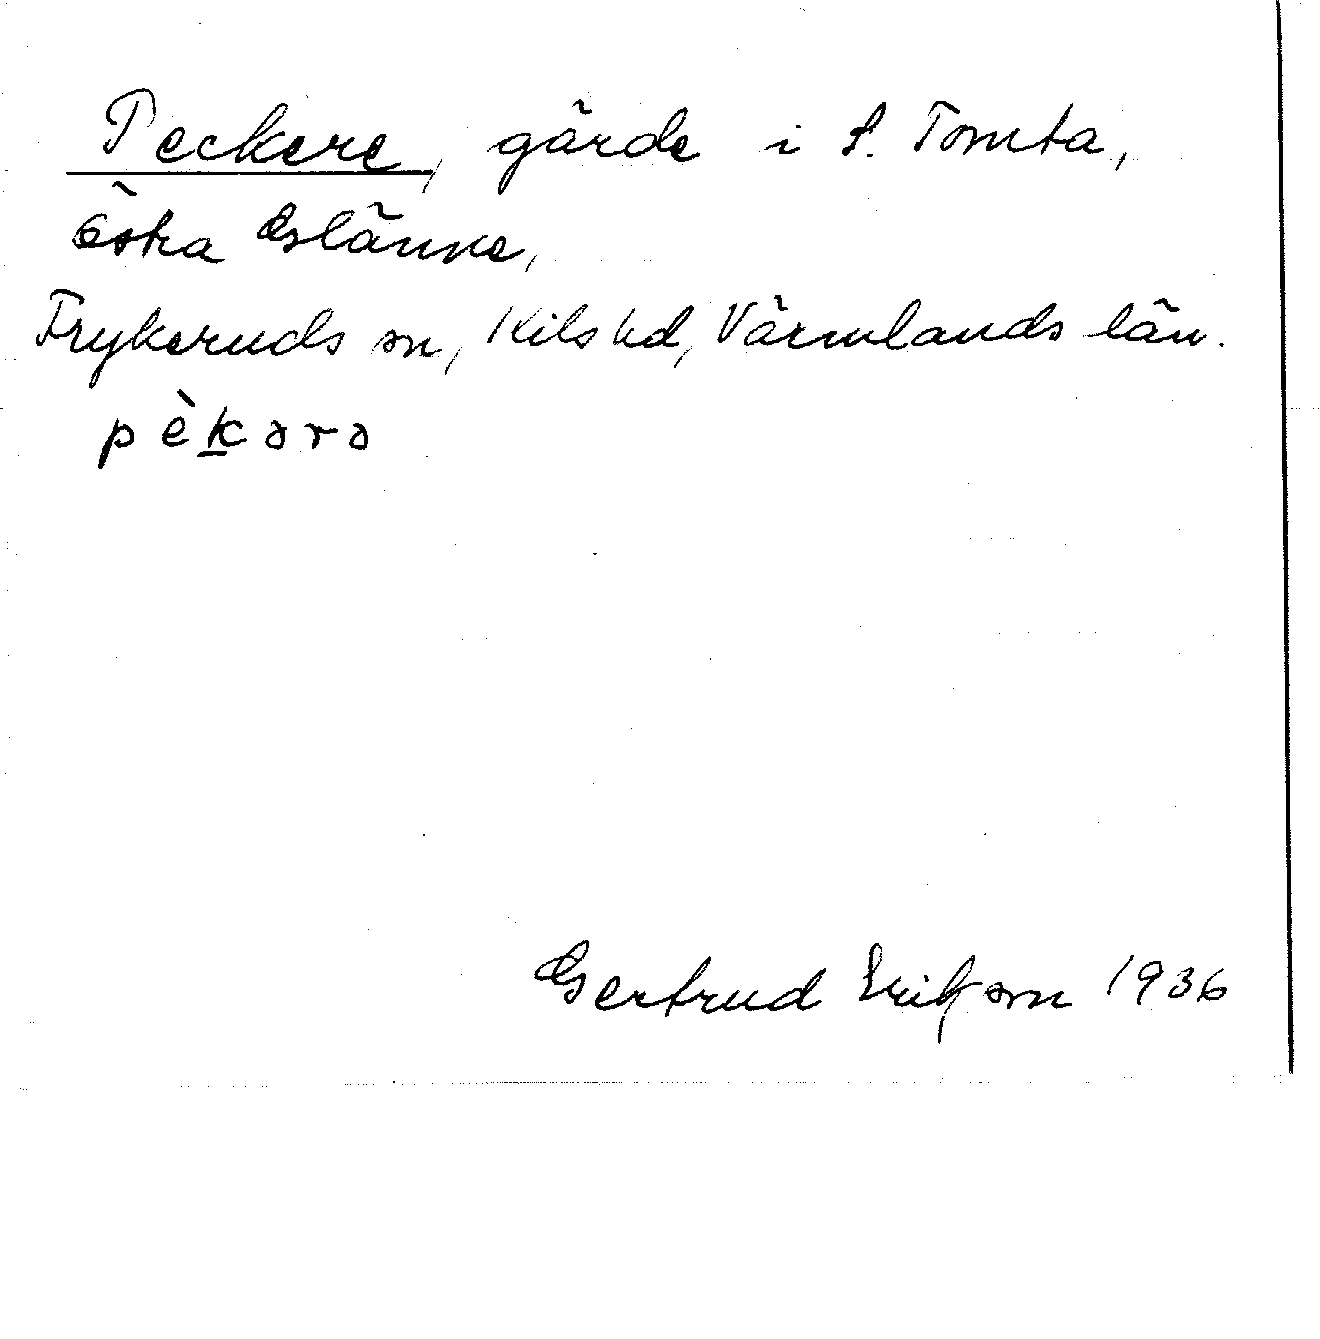 Peckere, gärde i S. Tomta,
Östra Glänne,
Frykeruds sn, Kils hd, Värmlands län.
pèk̲ərə
Gertrud Erikson 1936